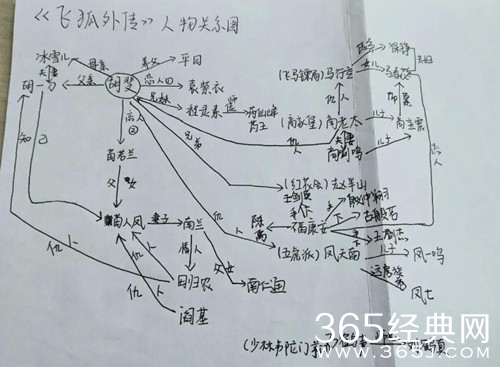 《飞狐外传》人物关系图
冰雪儿
母亲
义父
平四
夫妻
胡斐
胡一刀
父亲
恋人①
袁紫衣
兄妹
程灵素
药王
恋人
②
苗若兰
父女
知
己
苗人凤
妻子
南兰
情人
田归农
父女
仇人
仇人
仇人
阎基
(飞马镖局)马行空
徐铮
女儿
马春花
夫妇
仇人
(商家堡)商老太
夫妻
商剑鸣
儿子
商宝震
兄弟
(红花会)赵半山
仇人
福康安
手下
手下
恋人
(五虎派)凤天南
儿子
凤一鸣
凤七
(少林韦陀门
365经典网
WWW.365JZ.COM